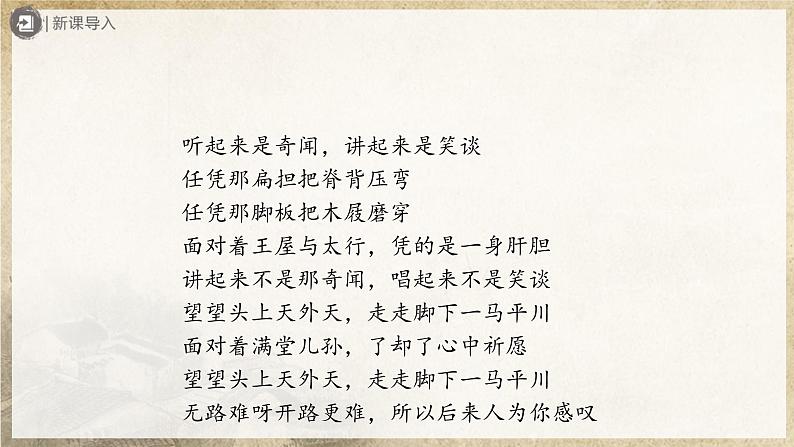 新课导入
听起来是奇闻，讲起来是笑谈
任凭那扁担把脊背压弯
任凭那脚板把木屐磨穿
面对着王屋与太行，凭的是一身肝胆
讲起来不是那奇闻，唱起来不是笑谈
望望头上天外天，走走脚下一马平川
面对着满堂儿孙，了却了心中祈愿
望望头上天外天，走走脚下一马平川
无路难呀开路更难，所以后来人为你感叹